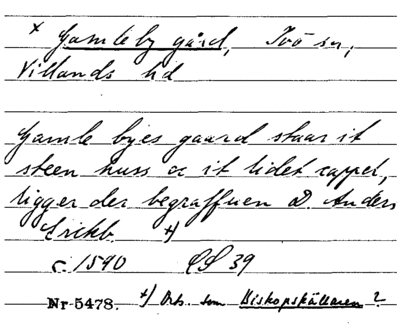 x Gamleby gård, Ivö sn,
Villands hd
Gamle byes gaard staar it
steen huss oc it lidet cappel,
ligger der begraffuen D. Anders
Erickb. +)
c. 1590 CS 39
Nr 5478. +) Obs. som Biskopskällaren?